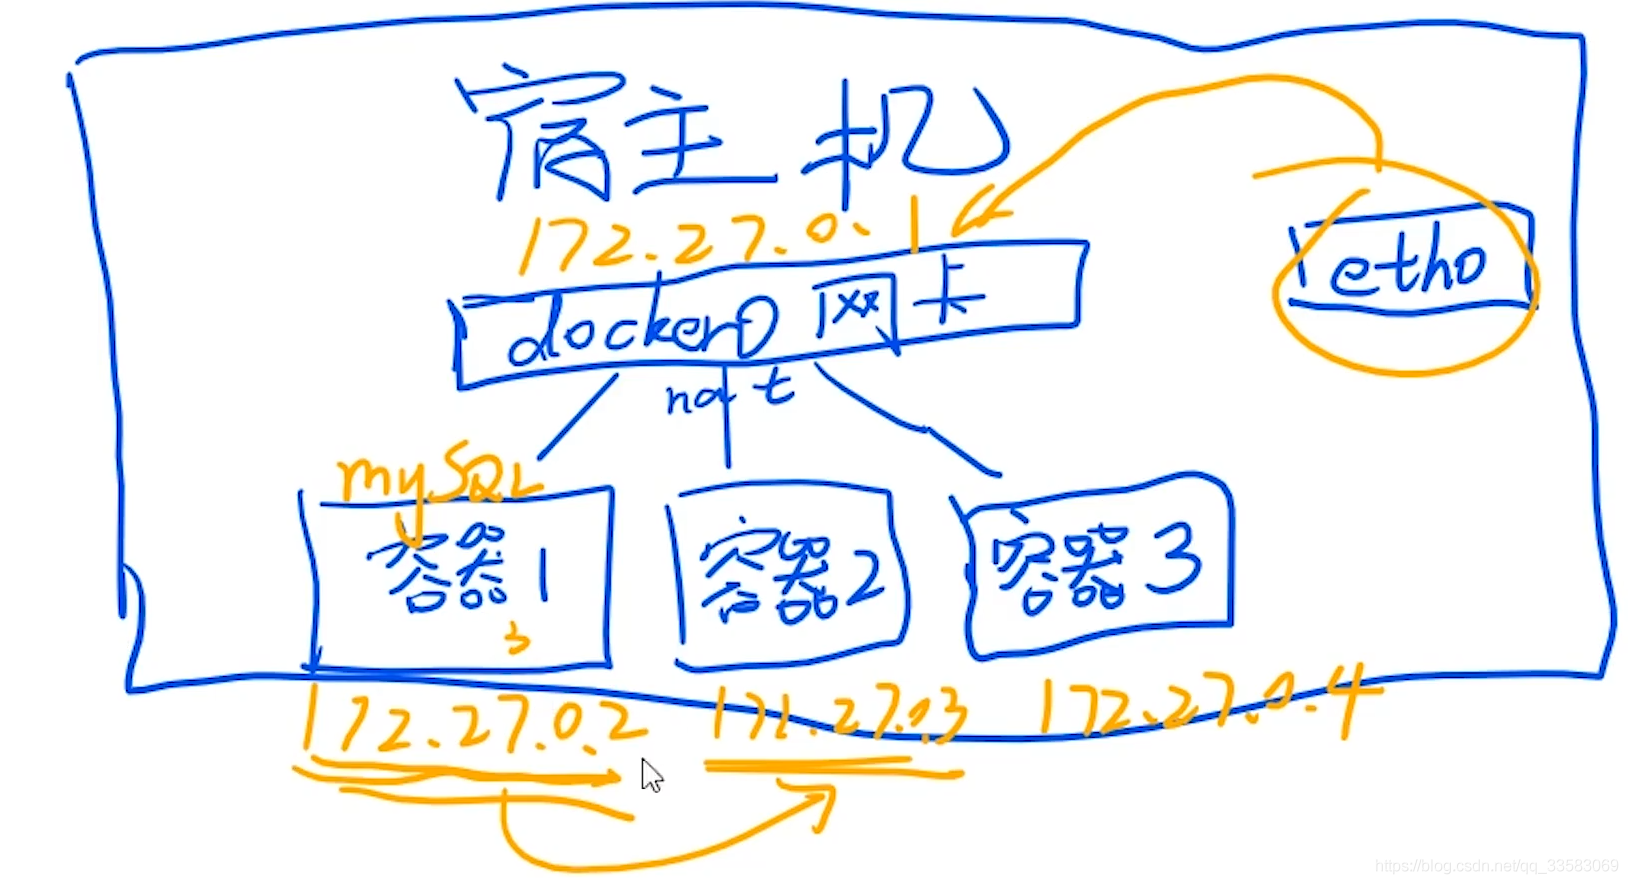 宿主机
172.27.0.1
etho
docker0 网卡
nat
mySQL
容器1
容器2
容器3
3
172.27.0.2
171.27.0.3
172.27.0.4
https://blog.csdn.net/qq_33583069